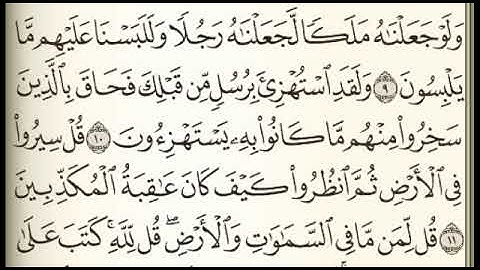 وَلَوْ جَعَلْنَٰهُ مَلَكًا لَّجَعَلْنَٰهُ رَجُلًا وَلَلَبَسْنَا عَلَيْهِم مَّا
يَلْبِسُونَ ٩ وَلَقَدِ ٱسْتُهْزِئَ بِرُسُلٍ مِّن قَبْلِكَ فَحَاقَ بِٱلَّذِينَ
سَخِرُوا۟ مِنْهُم مَّا كَانُوا۟ بِهِۦ يَسْتَهْزِءُونَ ١٠ قُلْ سِيرُوا۟
فِى ٱلْأَرْضِ ثُمَّ ٱنظُرُوا۟ كَيْفَ كَانَ عَٰقِبَةُ ٱلْمُكَذِّبِينَ
١١ قُل لِّمَن مَّا فِى ٱلسَّمَٰوَٰتِ وَٱلْأَرْضِ ۖ قُل لِّلَّهِ ۚ كَتَبَ عَلَىٰ